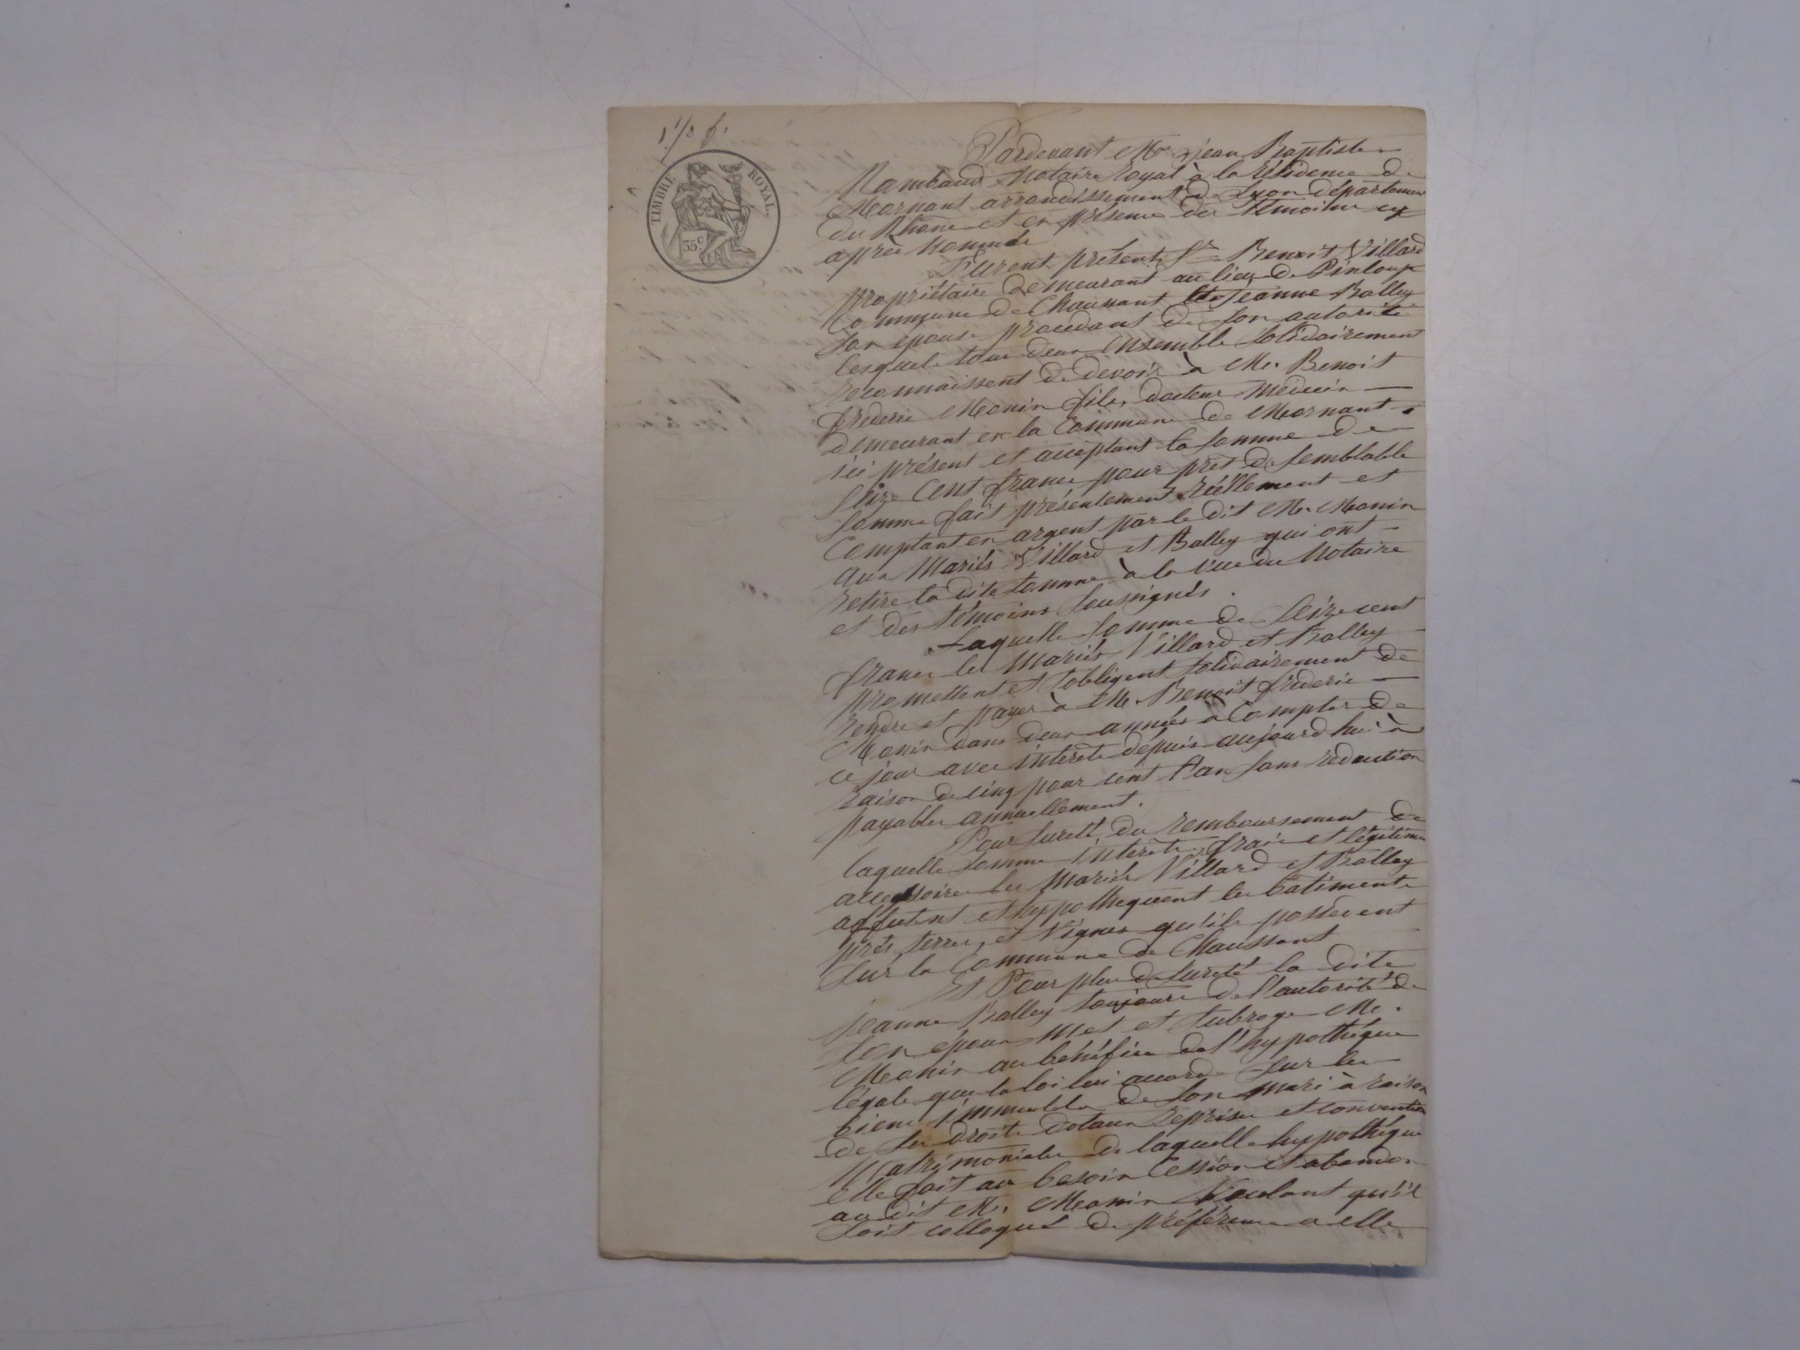 1 1/2 f.
TIMBRE ROYAL.
35 c
Pardevant Me Jean Baptiste
Rambaud Notaire royal à la résidence de
Mornant arrondissement de Lyon département
du Rhône et en présence des témoins cy
après nommés
Furent présents Sr Benoit Villard
propriétaire demeurant au lieu de Pinloup
Commune de Chaussant et Jeanne Balley
son épouse procédant de son autorité
lesquels tous deux ensemble solidairement
reconnaissent de devoir à Mr. Benoit
fréderic Monin fils, docteur médecin
demeurant en la Commune de Mornant
ici présent et acceptant la somme de
Seize Cent francs pour prêt de semblable
somme fait présentement réellement et
Comptant en argent par le dit Mr. Monin
aux Mariés Villard et Balley qui ont
retiré la dite somme à la vue du Notaire
et des témoins soussignés.
Laquelle somme de seize cent
francs les Mariés Villard et Balley
promettent et s'obligent solidairement de
rendre et payer à Mr. Benoit fréderic
Monin dans deux années à Compter de
ce jour avec intérêts depuis aujourd'hui à
raison de cinq pour cent l'an sans réduction
payables annuellement.
Pour sureté du remboursement de
laquelle somme intérêts, frais et légitimes
accessoires les Mariés Villard et Balley
affectent et hypothèquent les batiments
prés, terres, et Vignes qu'ils possèdent
sur la Commune de Chaussant
Et Pour plus de sureté la dite
Jeanne Balley toujours de l'autorité de
son époux Met et subroge Mr.
Monin au bénéfice de l'hypothèque
légale que la loi lui accorde sur les
biens immeubles de son mari à raison
de ses droits dotaux reprises et conventions
Matrimoniales de laquelle hypothèque
elle fait au besoin Cession et abandon
au dit Mr. Monin Voulant qu'il
soit colloqué de préférence a elle